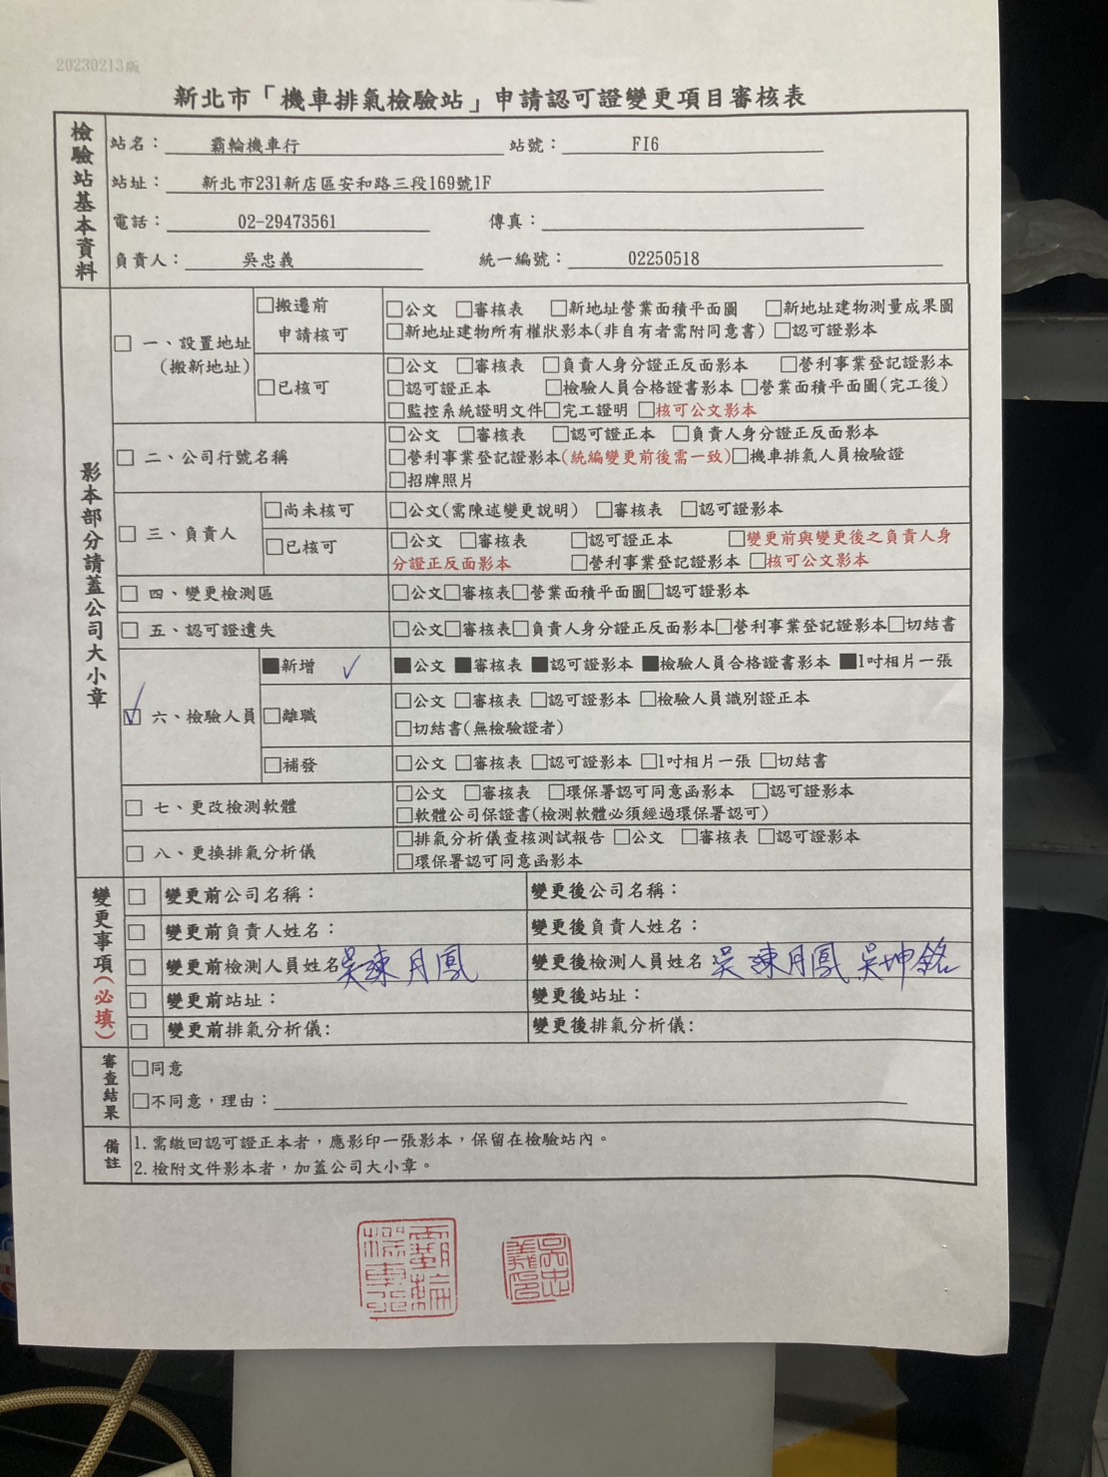 20230213版
新北市「機車排氣檢驗站」申請認可證變更項目審核表
檢驗站基本資料
站名： 霸輪機車行 站號： FI6
站址： 新北市231新店區安和路三段169號1F
電話： 02-29473561 傳真：
負責人： 吳忠義 統一編號： 02250518
影本部分請蓋公司大小章
□一、設置地址(搬新地址)
□搬遷前申請核可
□公文 □審核表 □新地址營業面積平面圖 □新地址建物測量成果圖
□新地址建物所有權狀影本(非自有者需附同意書) □認可證影本
□已核可
□公文 □審核表 □負責人身分證正反面影本 □營利事業登記證影本
□認可證正本 □檢驗人員合格證書影本 □營業面積平面圖(完工後)
□監控系統證明文件□完工證明 □核可公文影本
□二、公司行號名稱
□公文 □審核表 □認可證正本 □負責人身分證正反面影本
□營利事業登記證影本(統編變更前後需一致)□機車排氣人員檢驗證
□招牌照片
□三、負責人
□尚未核可 □公文(需陳述變更說明) □審核表 □認可證影本
□已核可
□公文 □審核表 □認可證正本 □變更前與變更後之負責人身
分證正反面影本 □營利事業登記證影本 □核可公文影本
□四、變更檢測區 □公文□審核表□營業面積平面圖□認可證影本
□五、認可證遺失 □公文□審核表□負責人身分證正反面影本□營利事業登記證影本□切結書
☑六、檢驗人員
■新增 ✓ ■公文 ■審核表 ■認可證影本 ■檢驗人員合格證書影本 ■1吋相片一張
□離職
□公文 □審核表 □認可證影本 □檢驗人員識別證正本
□切結書(無檢驗證者)
□補發 □公文 □審核表 □認可證影本 □1吋相片一張 □切結書
□七、更改檢測軟體
□公文 □審核表 □環保署認可同意函影本 □認可證影本
□軟體公司保證書(檢測軟體必須經過環保署認可)
□八、更換排氣分析儀
□排氣分析儀查核測試報告 □公文 □審核表 □認可證影本
□環保署認可同意函影本
變更事項(必填)
□ 變更前公司名稱： 變更後公司名稱：
□ 變更前負責人姓名： 變更後負責人姓名：
□ 變更前檢測人員姓名 吳陳月鳳 變更後檢測人員姓名 吳陳月鳳 吳坤銘
□ 變更前站址： 變更後站址：
□ 變更前排氣分析儀: 變更後排氣分析儀:
審查結果
□同意
□不同意，理由：
備註
1. 需繳回認可證正本者，應影印一張影本，保留在檢驗站內。
2. 檢附文件影本者，加蓋公司大小章。
霸輪機車行
吳忠義印